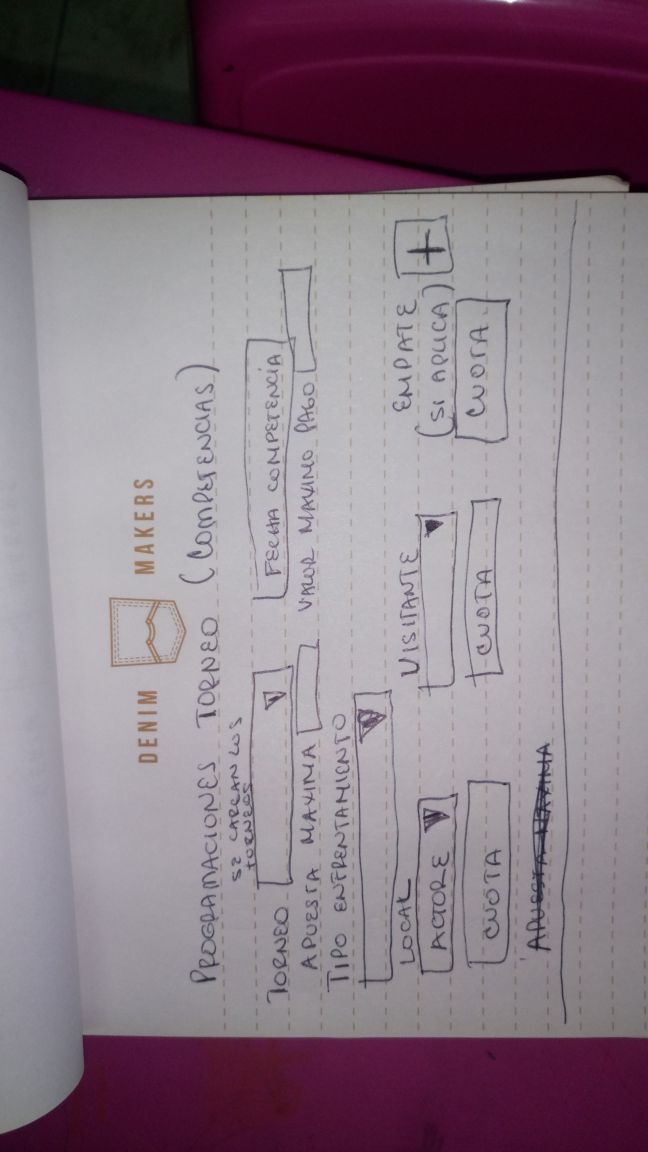 DENIM MAKERS
PROGRAMACIONES TORNEO (COMPETENCIAS)
SE CARGAN LOS
TORNEOS
TORNEO FECHA COMPETENCIA
APUESTA MAXIMA VALOR MAXIMO PAGO
TIPO ENFRENTAMIENTO
LOCAL VISITANTE EMPATE
ACTORE (SI APLICA) +
CUOTA CUOTA CUOTA
APUESTA MAXIMA